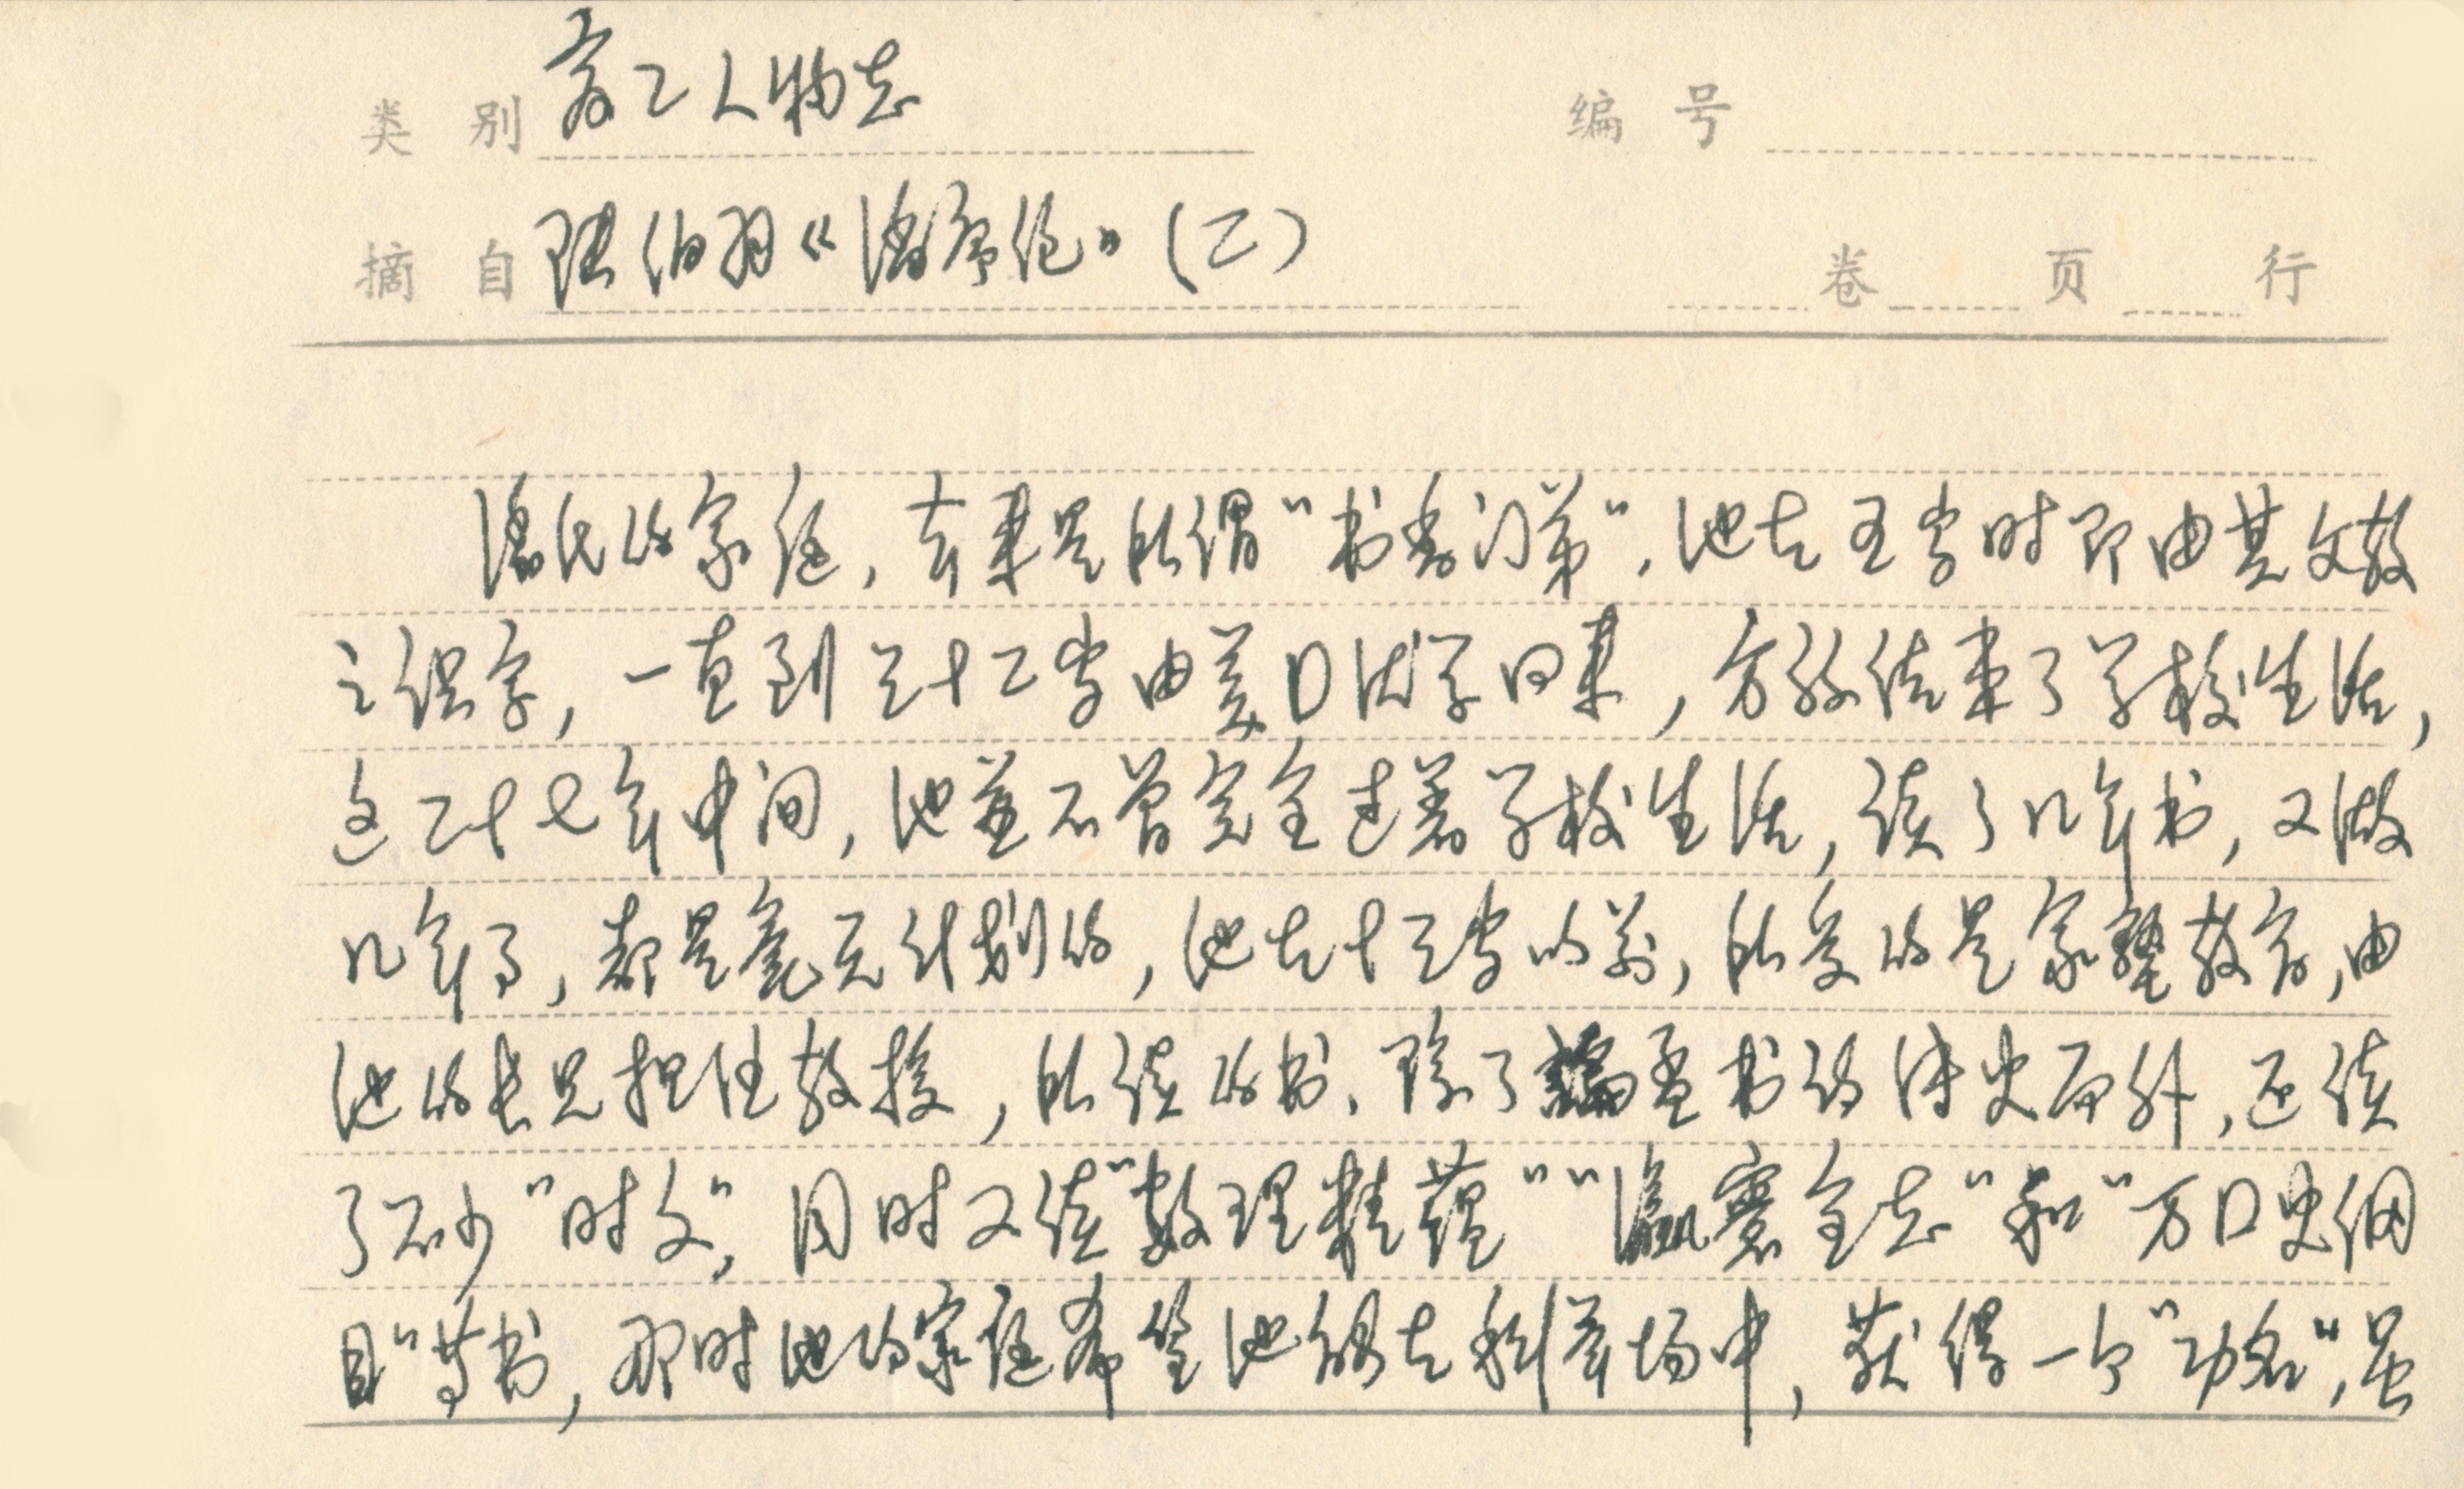 类 别 人物志 编 号
摘 自 陆伯羽《潘序伦》(二) 卷 页 行
潘氏的家庭，来是所谓“书香门第”，他在五岁时即由其父教
之识字，一直到三十二岁由美国留学回来，方始结束了学校生活，
这二十七年中间，他並不曾完全过着学校生活，读了几年书，又做
几年事，都是毫无计划的，他在十三岁以前，所受的是家塾教育，由
他的长兄担任教授，所读的书、除了孟书诗史而外，还读
了不少“时文”，同时又读“数理精蕴”“瀛寰全志”和“万国史纲
目”等书，那时他的家庭希望他能在科举场中，获得一个“功名”，虽